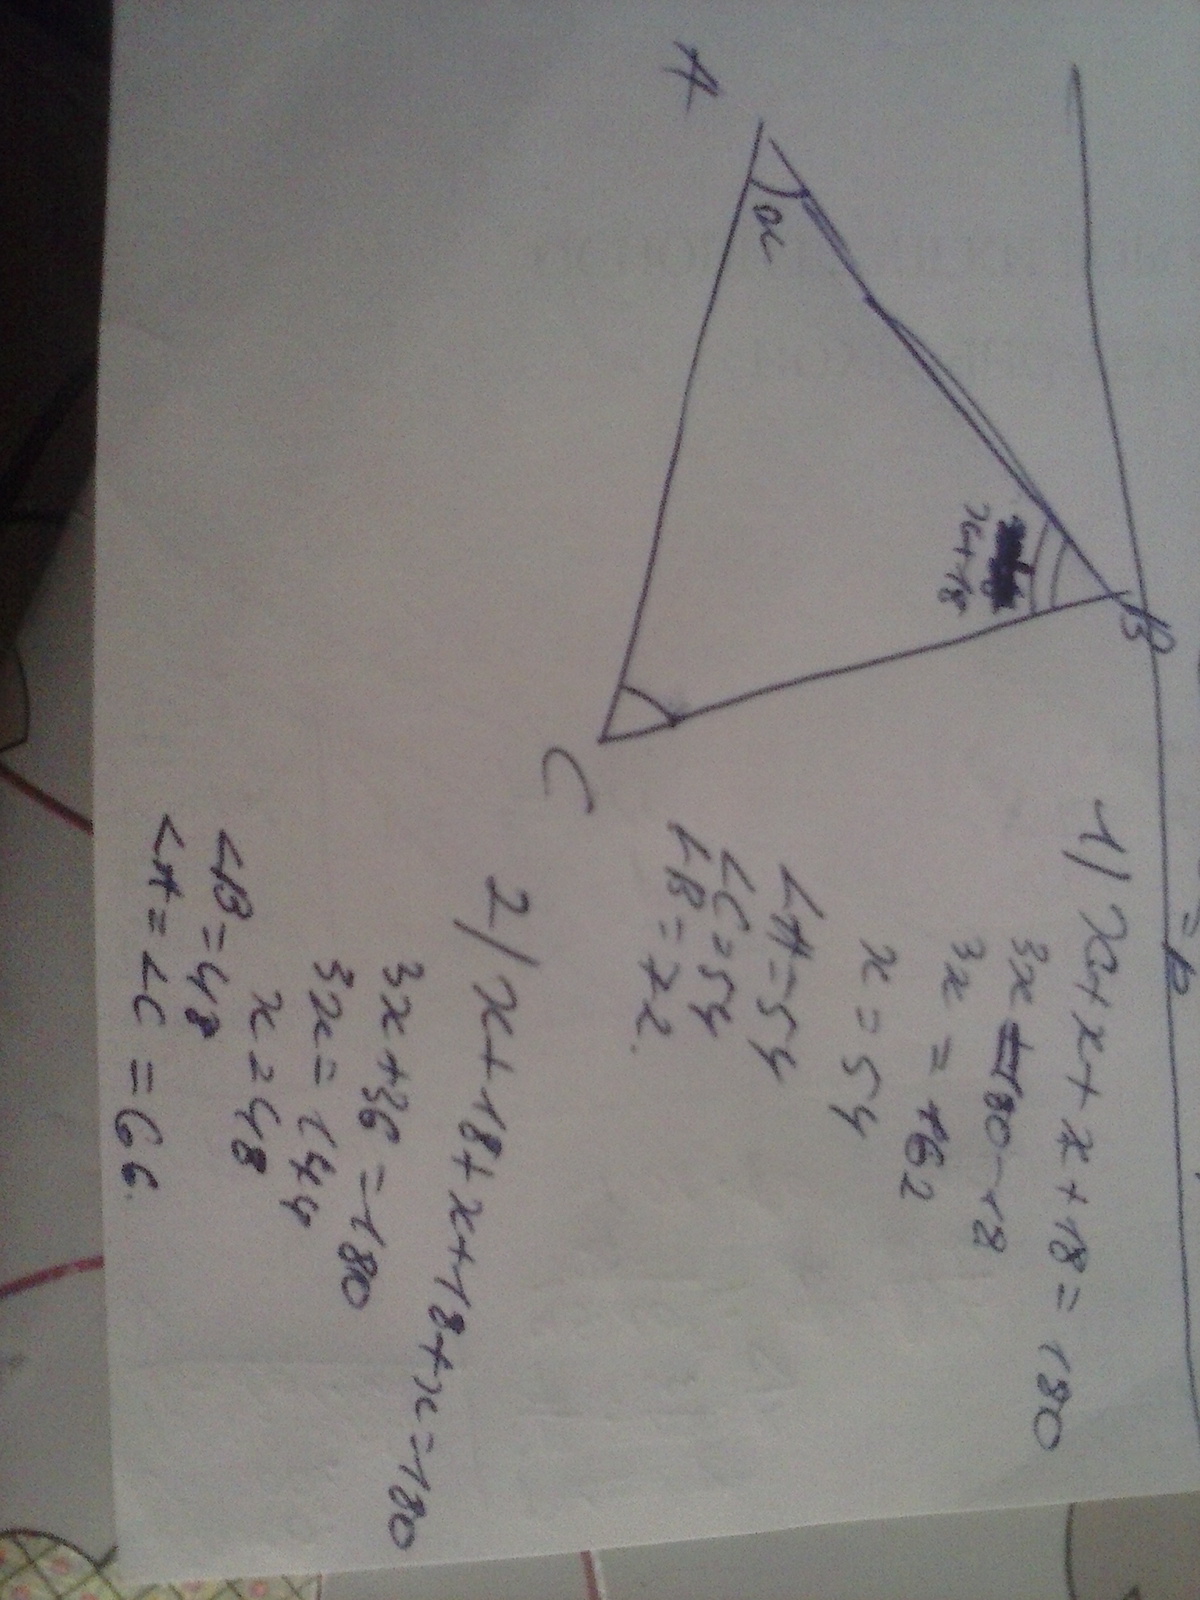 = 6
B
x+18
A
x
C
1) x+x+x+18=180
3x=180-18
3x=162
x=54
∠A=54
∠C=54
∠B=72.
2) x+18+x+18+x=180
3x+36=180
3x=144
x=48
∠B=48
∠A=∠C=66.